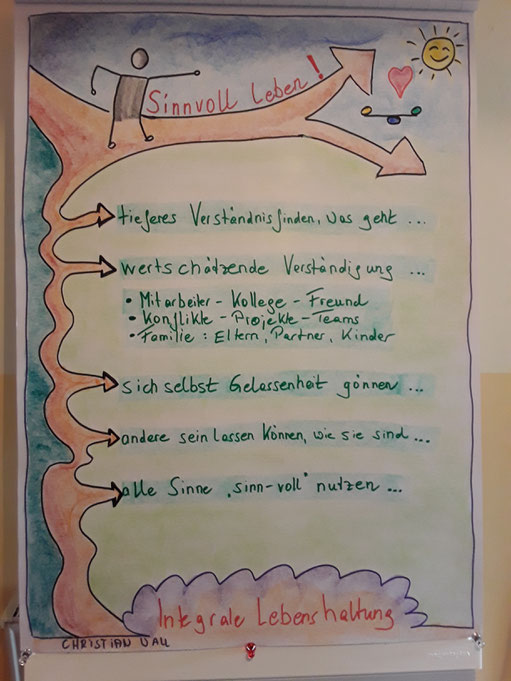 Sinnvoll Leben!
tieferes Verständnis finden, was geht ...
wertschätzende Verständigung ...
• Mitarbeiter - Kollege - Freund
• Konflikte - Projekte - Teams
• Familie: Eltern, Partner, Kinder
sich selbst Gelassenheit gönnen ...
andere sein lassen können, wie sie sind ...
alle Sinne „sinn-voll" nutzen ...
Integrale Lebenshaltung
CHRISTIAN